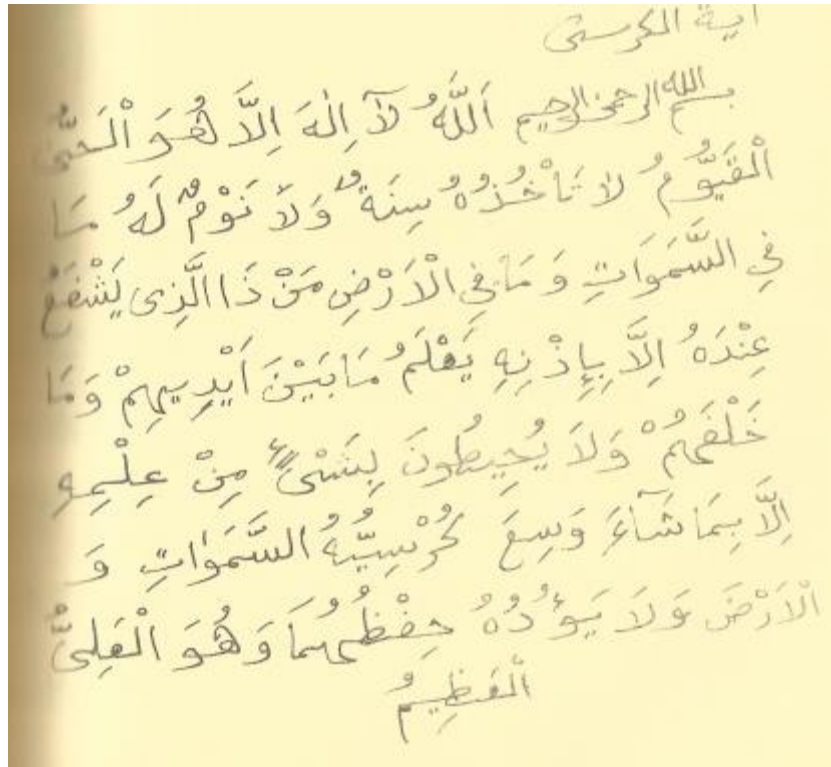 آية الكرسى
بسم الله الرحمن الرحيم اَللَّهُ لآَ اِلٰهَ اِلاَّ هُوَ الْحَىُّ
الْقَيُّومُ لا تَأْخُذُهُ سِنَةٌ وَلاَ نَوْمٌ لَهُ مَا
فِي السَّمَوَاتِ وَمَا فِي الْاَرْضِ مَنْ ذَا الَّذِى يَشْفَعُ
عِنْدَهُ اِلاَّ بِإِذْنِهِ يَعْلَمُ مَا بَيْنَ اَيْدِيهِمْ وَمَا
خَلْفَهُمْ وَلاَ يُحِيطُونَ بِشَىْءٍ مِنْ عِلْمِهِ
اِلَّا بِمَا شَآءَ وَسِعَ كُرْسِيُّهُ السَّمَوٰاتِ وَ
الْاَرْضَ وَلاَ يَؤُدُهُ حِفْظُهُمَا وَهُوَ الْعَلِىُّ
الْعَظِيمُ